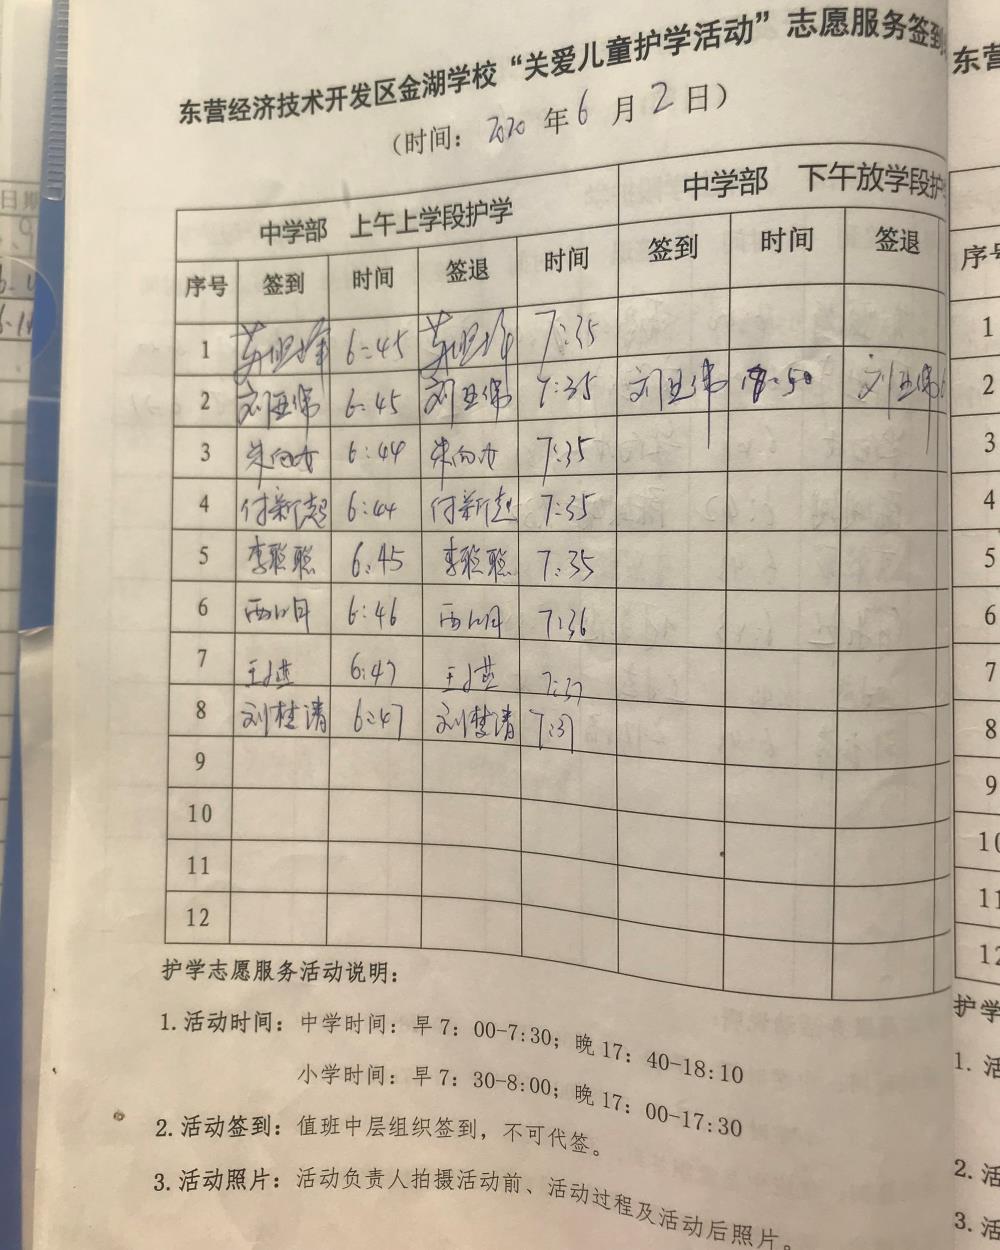 东营经济技术开发区金湖学校“关爱儿童护学活动”志愿服务签到
（时间：2020 年 6 月 2 日）
中学部 上午上学段护学 中学部 下午放学段护
序号 签到 时间 签退 时间 签到 时间 签退
1 6:45 7:35
2 刘亚伟 6:45 刘亚伟 7:35 刘亚伟 :50 刘亚伟
3 6:44 7:35
4 付新超 6:44 付新超 7:35
5 李聪聪 6:45 李聪聪 7:35
6 6:46 7:36
7 6:47 7:37
8 刘梦清 6:47 刘梦清 7:37
9
10
11
12
护学志愿服务活动说明：
1.活动时间：中学时间：早 7：00-7:30；晚 17：40-18:10
小学时间：早 7：30-8:00；晚 17：00-17:30
2.活动签到：值班中层组织签到，不可代签。
3.活动照片：活动负责人拍摄活动前、活动过程及活动后照片。
日期
东营
序号
1
2
3
4
5
6
7
8
9
10
11
12
护学
1. 活
2. 活
3. 活